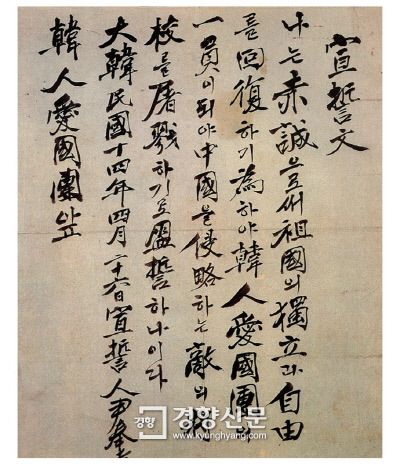 宣誓文
나는赤誠으로써祖國의獨立과自由
를回復하기爲하야韓人愛國團의
一員이되야中國을侵略하는敵의將
校를屠戮하기로盟誓하나이다
大韓民國十四年四月二十六日宣誓人尹奉
韓人愛國團앞
경향 경향신문
www.kyunghyang.com